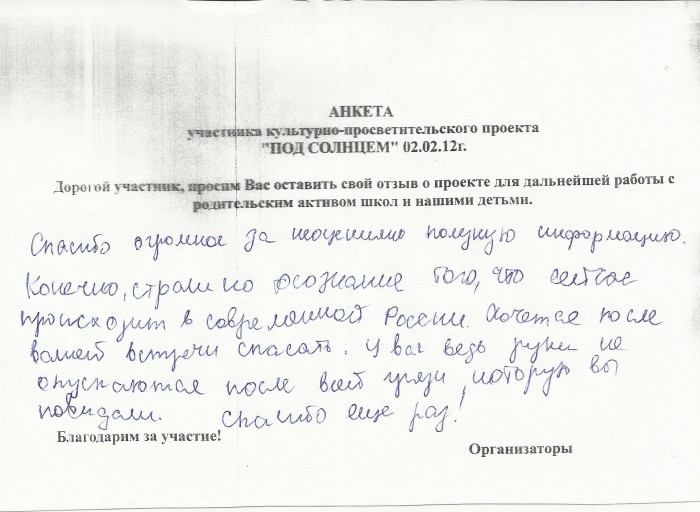 АНКЕТА
участника культурно-просветительского проекта
"ПОД СОЛНЦЕМ" 02.02.12г.
Дорогой участник, просим Вас оставить свой отзыв о проекте для дальнейшей работы с
родительским активом школ и нашими детьми.
Спасибо огромное за неоценимо полезную информацию.
Конечно, страшно осознание того, что сейчас
происходит в современной России. Хочется после
вашей встречи спасать. У вас ведь руки не
опускаются после всей грязи, которую вы
повидали. Спасибо еще раз!
Благодарим за участие!
Организаторы